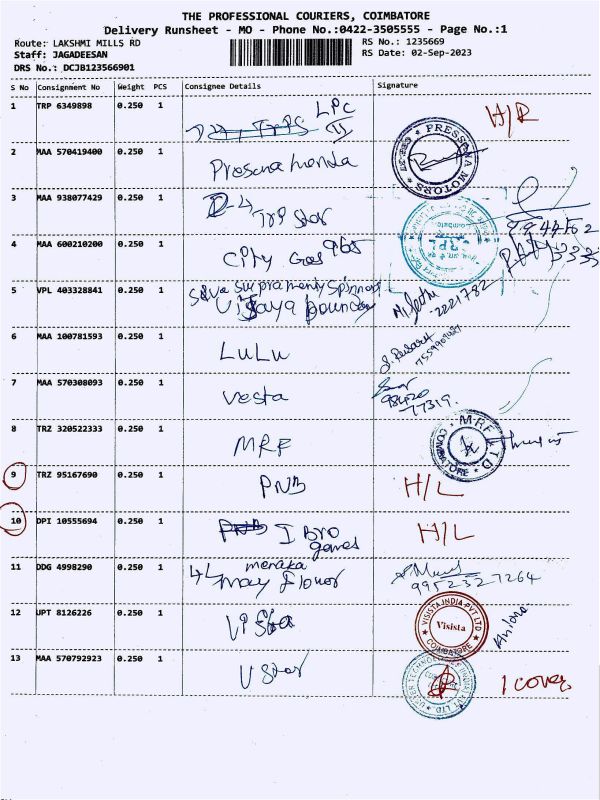 THE PROFESSIONAL COURIERS, COIMBATORE
Delivery Runsheet - MO - Phone No.:0422-3505555 - Page No.:1
Route: LAKSHMI MILLS RD
RS No.: 1235669
Staff: JAGADEESAN
RS Date: 02-Sep-2023
DRS No.: DCJB123566901
S No Consignment No Weight PCS Consignee Details Signature
1 TRP 6349898 0.250 1 LPC H/R
2 MAA 570419400 0.250 1 Presana honda
PRESSANA MOTORS
3 MAA 938077429 0.250 1
TVS Star
4 MAA 600210200 0.250 1 City Gas
5 VPL 403328841 0.250 1 Siva
Vijaya
6 MAA 100781593 0.250 1 LuLu
7 MAA 570308093 0.250 1 Vesta
98420
77319.
8 TRZ 320522333 0.250 1 MRF
MRF LTD
COIMBATORE
9 TRZ 95167690 0.250 1 PNB H/L
10 DPI 10555694 0.250 1 I Bro H/L
games
11 DDG 4998290 0.250 1 menaka
4L may flower 9952327264
12 UPT 8126226 0.250 1 Vista
VISISTA INDIA PVT LTD
Visista
COIMBATORE
13 MAA 570792923 0.250 1 U Star 1 cover